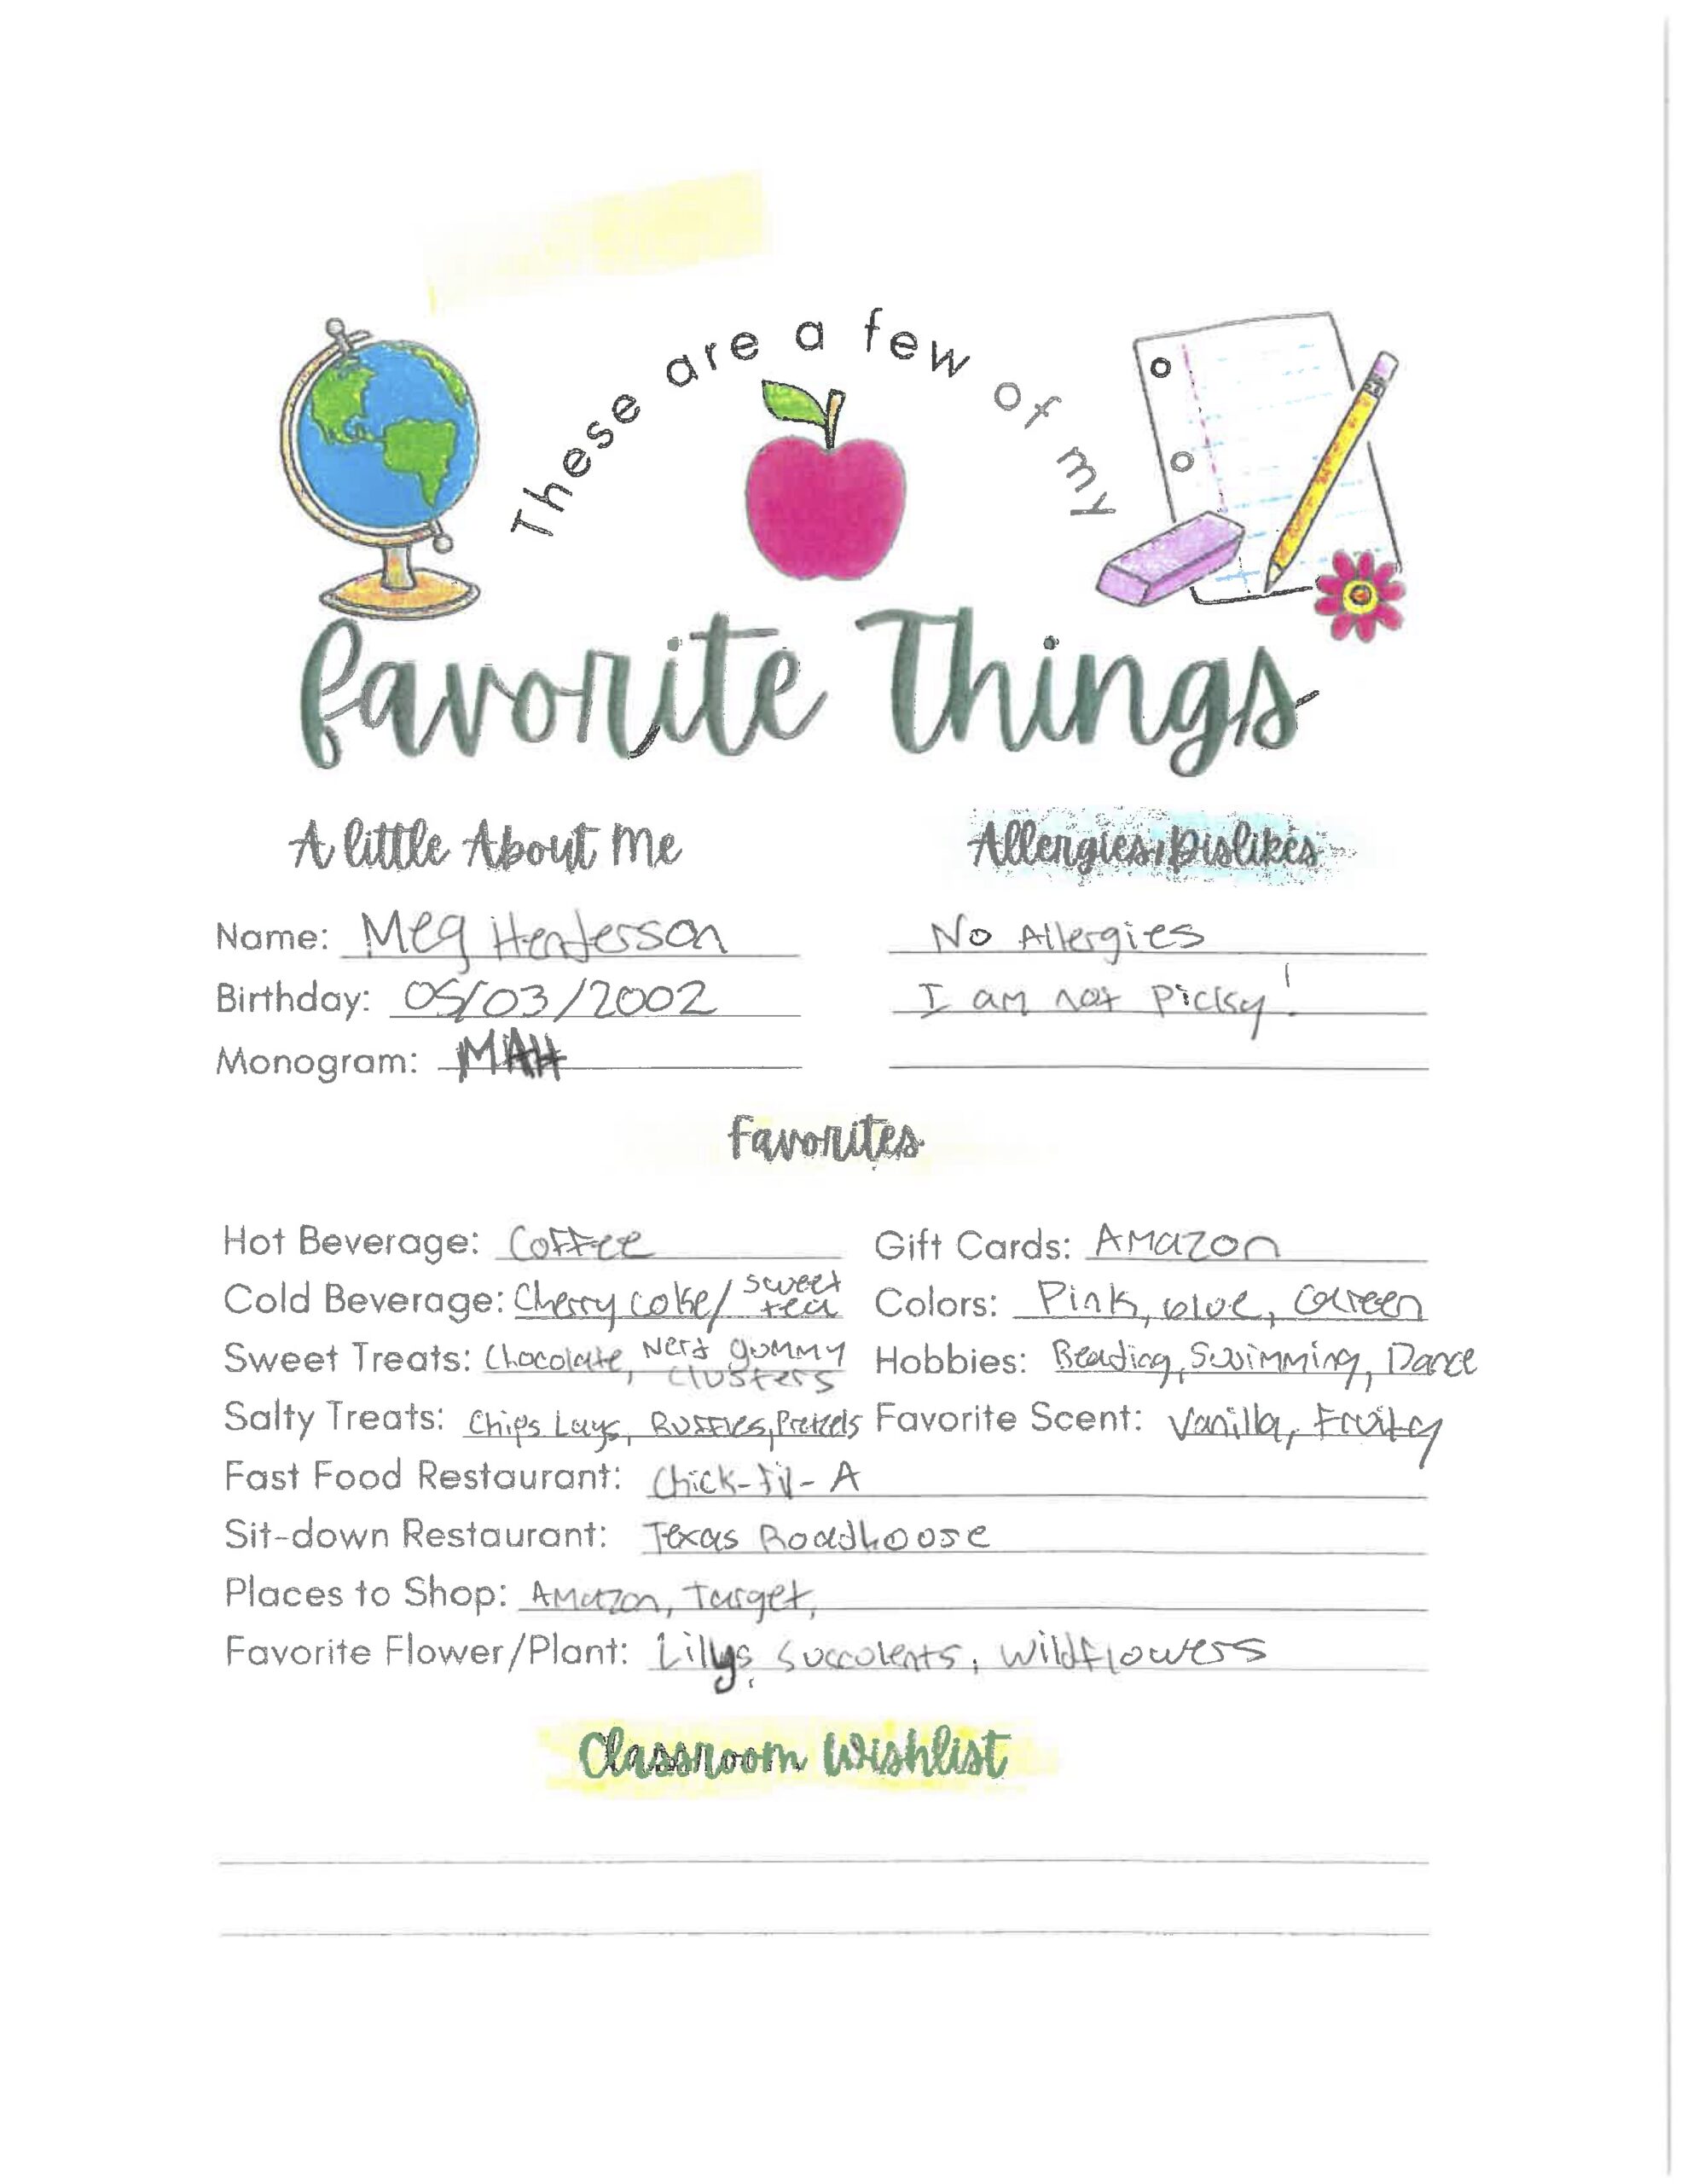 These are a few of my
favorite Things
A little About Me
Allergies/Dislikes
Name: Meg Henderson
No Allergies
Birthday: 05/03/2002
I am not Picky!
Monogram: MAH
Favorites
Hot Beverage: Coffee
Gift Cards: Amazon
Cold Beverage: Cherry coke/ sweet tea
Colors: Pink, blue, Green
Sweet Treats: Chocolate, Nerd gummy clusters
Hobbies: Reading, Swimming, Dance
Salty Treats: Chips Lays, Ruffles, Pretzels
Favorite Scent: Vanilla, Fruity
Fast Food Restaurant: Chick-fil-A
Sit-down Restaurant: Texas Roadhouse
Places to Shop: Amazon, Target,
Favorite Flower/Plant: Lillys, Succulents, Wildflowers
Classroom Wishlist